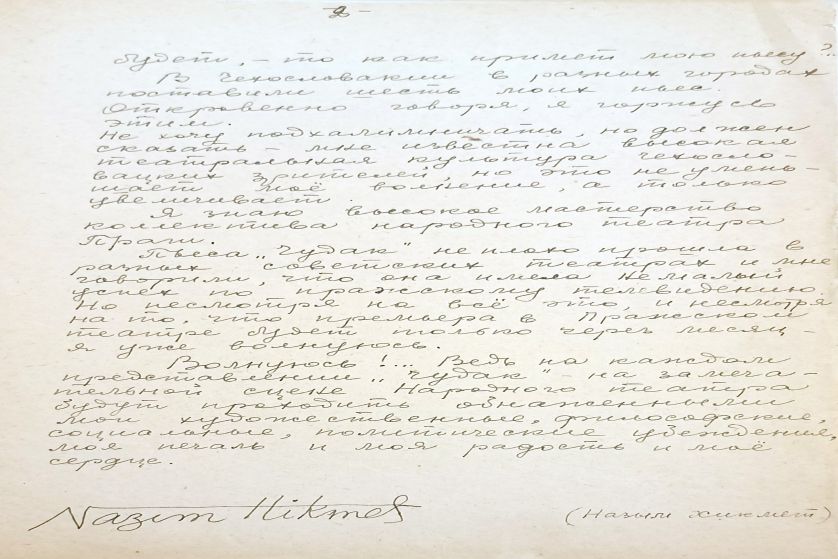 - 2 -
будет, - то как примет мою пьесу ?.
В Чехословакии в разных городах
поставили шесть моих пьес.
Откровенно говоря, я горжусь
этим.
Не хочу подхалимничать, но должен
сказать - мне известна высокая
театральная культура чехосло-
вацких зрителей, но это не умень-
шает моё волнение, а только
увеличивает.
Я знаю высокое мастерство
коллектива народного театра
Праги.
Пьеса „Чудак" неплохо прошла в
разных советских театрах и мне
говорили, что она имела немалый
успех по пражскому телевидению.
Но несмотря на всё это, и несмотря
на то, что премьера в Пражском
театре будет только через месяц -
я уже волнуюсь.
Волнуюсь !... Ведь на каждом
представлении „Чудак" - на замеча-
тельной сцене Народного театра
будут проходить обнаженными
мои художественные, философские,
социальные, политические убеждение,
моя печаль и моя радость и моё
сердце.
Nazım Hikmet
(Назым Хикмет)